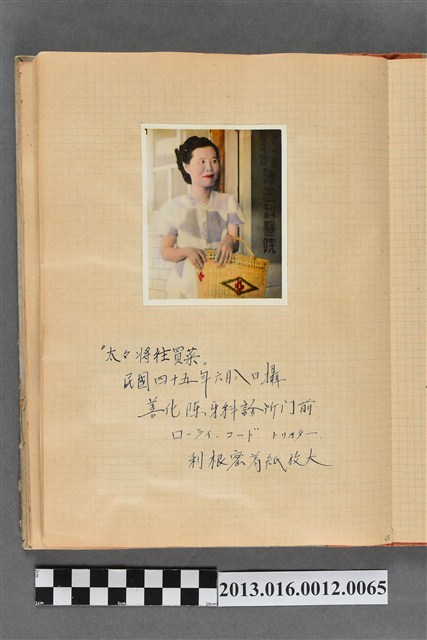 齒科醫院
"太々将往買菜"
民國四十五年六月八日攝
善化陳牙科診所门前
ローライ・コード トリオター
利根密着紙放大
2013.016.0012.0065